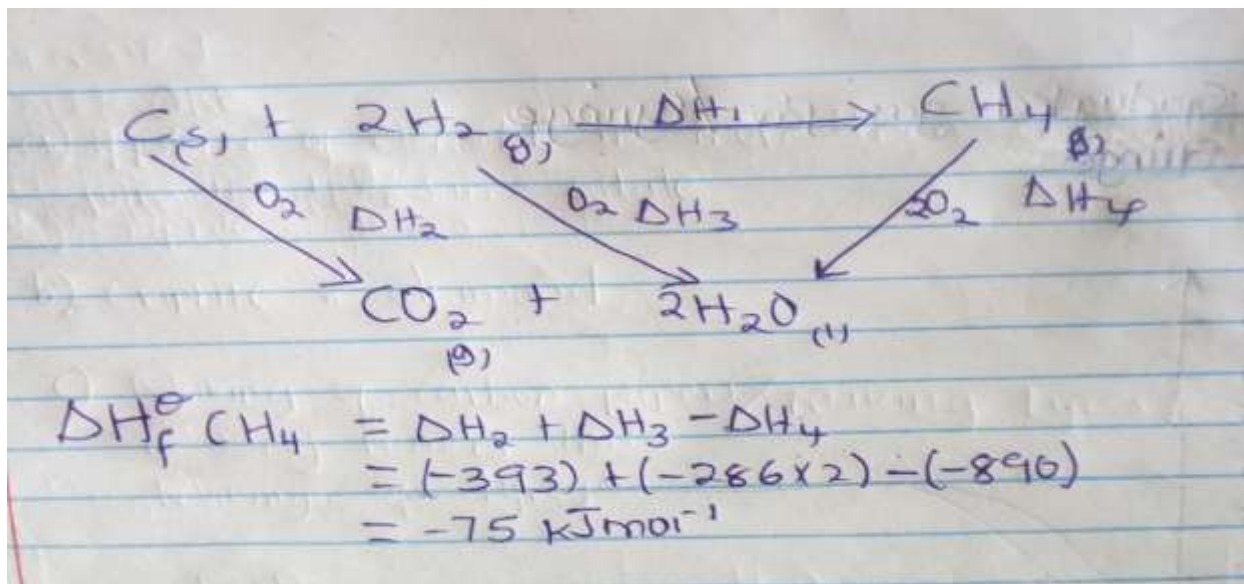 C(s) + 2H2(g) ΔH1 → CH4(g)
O2 ΔH2 O2 ΔH3 2O2 ΔH4
CO2(g) + 2H2O(l)
ΔHf⊖ CH4 = ΔH2 + ΔH3 - ΔH4
= (-393) + (-286 x 2) - (-890)
= -75 kJmol-1